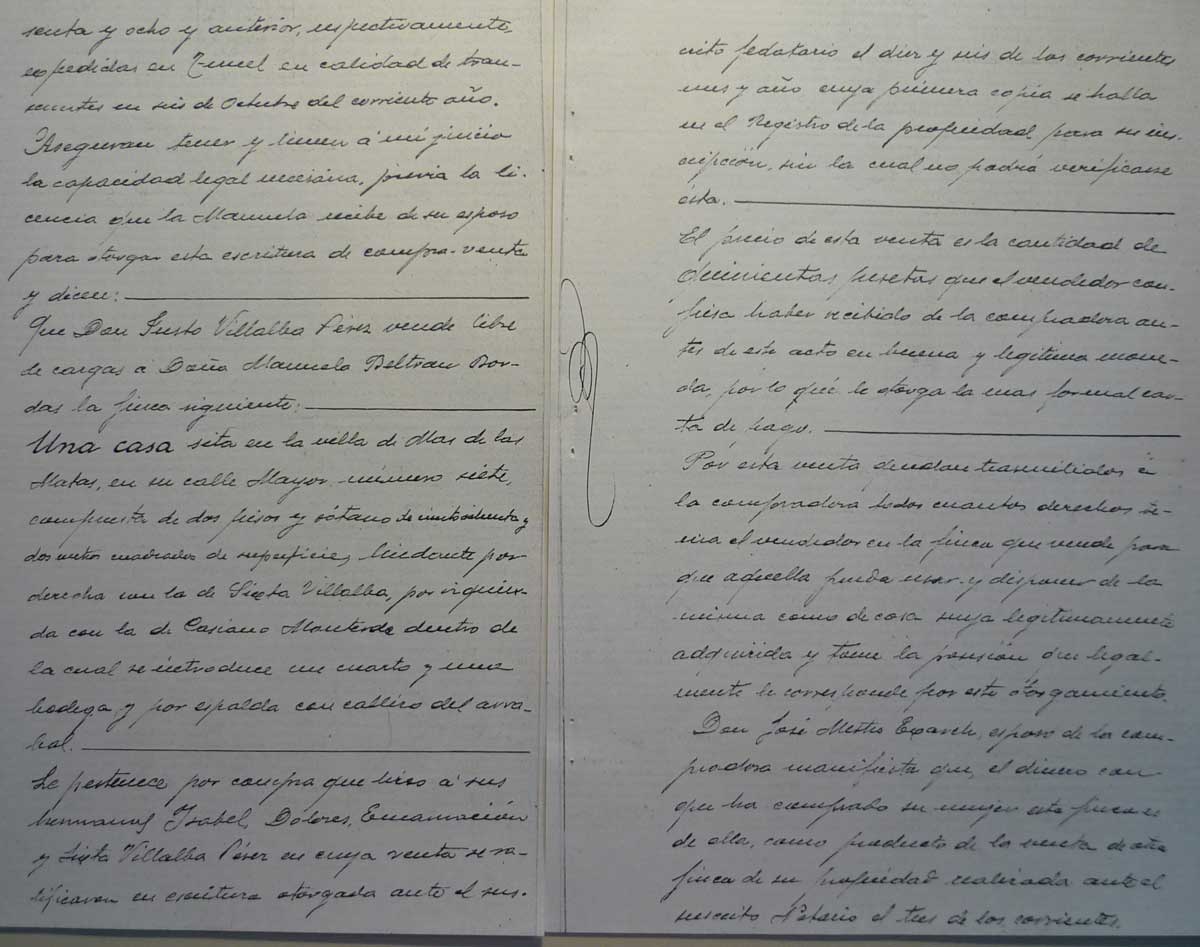 senta y ocho y anterior, respectivamente,
expedidas en Teruel en calidad de tran-
seuntes en seis de Octubre del corriente año.
Aseguran tener y tienen á mi juicio
la capacidad legal necesaria, previa la li-
cencia que la Manuela recibe de su esposo
para otorgar esta escritura de compra-venta
y dicen:
Que Don Justo Villalba Pérez vende libre
de cargas á Doña Manuela Beltran Bor-
das la finca siguiente:
Una casa sita en la villa de Mas de las
Matas, en su calle Mayor número siete,
compuesta de dos pisos y sótano de ciento ochenta y
dos metros cuadrados de superficie, lindante por
derecha con la de Sixta Villalba, por izquier-
da con la de Casiano Monterde dentro de
la cual se introduce un cuarto y una
bodega, y por espalda con callizo del arra-
bal.
Le pertenece por compra que hizo á sus
hermanas Isabel, Dolores, Encarnación
y Sixta Villalba Pérez en cuya venta se ra-
tificaron en escritura otorgada ante el sus-
crito fedatario el diez y seis de los corrientes
mes y año cuya primera copia se halla
en el Registro de la propiedad para su ins-
cripción, sin la cual no podrá verificarse
ésta.
El precio de esta venta es la cantidad de
Quinientas pesetas que el vendedor con-
fiesa haber recibido de la compradora an-
tes de este acto en buena y legitima mone-
da, por lo que le otorga la mas formal car-
ta de pago.
Por esta venta quedan transmitidos á
la compradora todos cuantos derechos te-
nia el vendedor en la finca que vende para
que aquella pueda usar y disponer de la
misma como de cosa suya legitimamente
adquirida y tome la posesión que legal-
mente le corresponde por este otorgamiento.
Don José Mestre Exarch, esposo de la com-
pradora manifiesta que, el dinero con
que ha comprado su mujer esta finca es
de ella, como producto de la venta de otra
finca de su propiedad realizada ante el
suscrito Notario el tres de los corrientes.